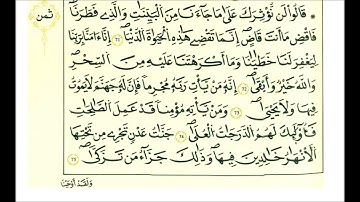 ثمن
۞ قَالُواْ لَن نُّوثِرَكَ عَلَىٰ مَا جَآءَنَا مِنَ اَلْبَيِّنَٰتِ وَالذِے فَطَرَنَا
فَاقْضِ مَآ أَنتَ قَاضٍ اِنَّمَا تَقْضِے هَٰذِهِ اِلْحَيَوٰةَ اَلدُّنْيَآ ٧١ إِنَّآ ءَامَنَّا بِرَبِّنَا
لِيَغْفِرَ لَنَا خَطَٰيَٰنَا وَمَآ أَكْرَهْتَنَا عَلَيْهِ مِنَ اَلسِّحْرِ
وَاللَّهُ خَيْرٌ وَأَبْقَىٰٓ ٧٢ إِنَّهُۥ مَنْ يَّاتِ رَبَّهُۥ مُجْرِماً فَإِنَّ لَهُۥ جَهَنَّمَ لَا يَمُوتُ
فِيهَا وَلَا يَحْيَىٰ ٧٣ وَمَنْ يَّاتِهِۦ مُومِناً قَدْ عَمِلَ اَلصَّٰلِحَٰتِ
فَأُوْلَٰٓئِكَ لَهُمُ اُلدَّرَجَٰتُ اُلْعُلَىٰ ٧٤ جَنَّٰتُ عَدْنٍ تَجْرِے مِن تَحْتِهَا
اَلْأَنْهَٰرُ خَٰلِدِينَ فِيهَا وَذَٰلِكَ جَزَآءُ مَن تَزَكَّىٰ ٧٥
وَلَقَدَ اَوْحَيْنَآ